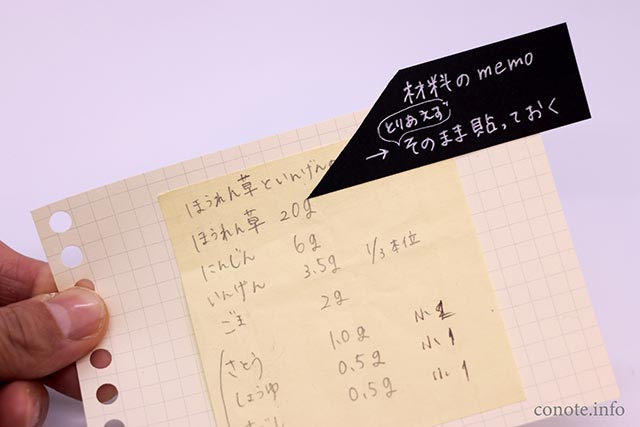 材料のmemo
とりあえず
→ そのまま貼っておく
ほうれん草といんげんの
ほうれん草 20g
にんじん 6g
いんげん 3.5g 1/3本位
ごま 2g
さとう 1.0g 小2
しょうゆ 0.5g 小1
0.5g 小1
conote.info